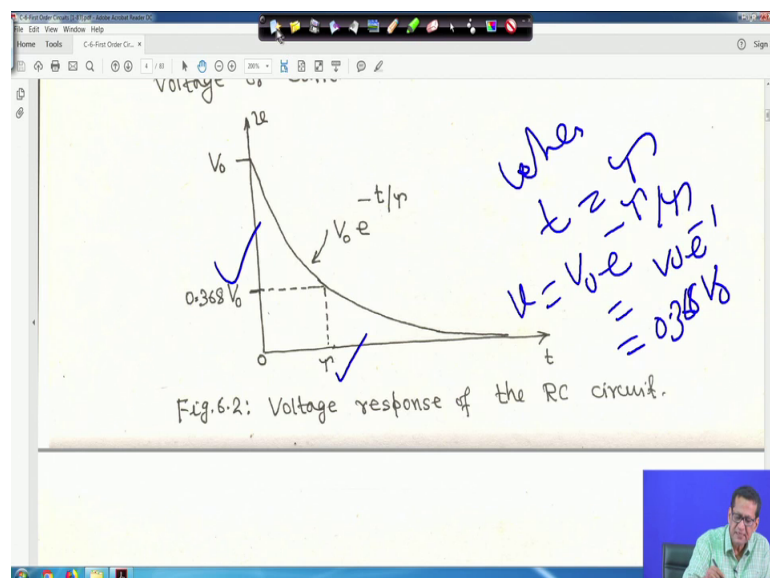 C-6-First Order Circuits (1-83).pdf - Adobe Acrobat Reader DC
File Edit View Window Help
Home Tools C-6-First Order Cir... × Sign
4 / 83 200%
Voltage
v
V₀
V₀ e^{-t/τ}
0.368 V₀
0 τ t
Fig.6.2: Voltage response of the RC circuit.
when
t = τ
v = V₀ e^{-τ/τ}
= V₀e^{-1}
= 0.368 V₀